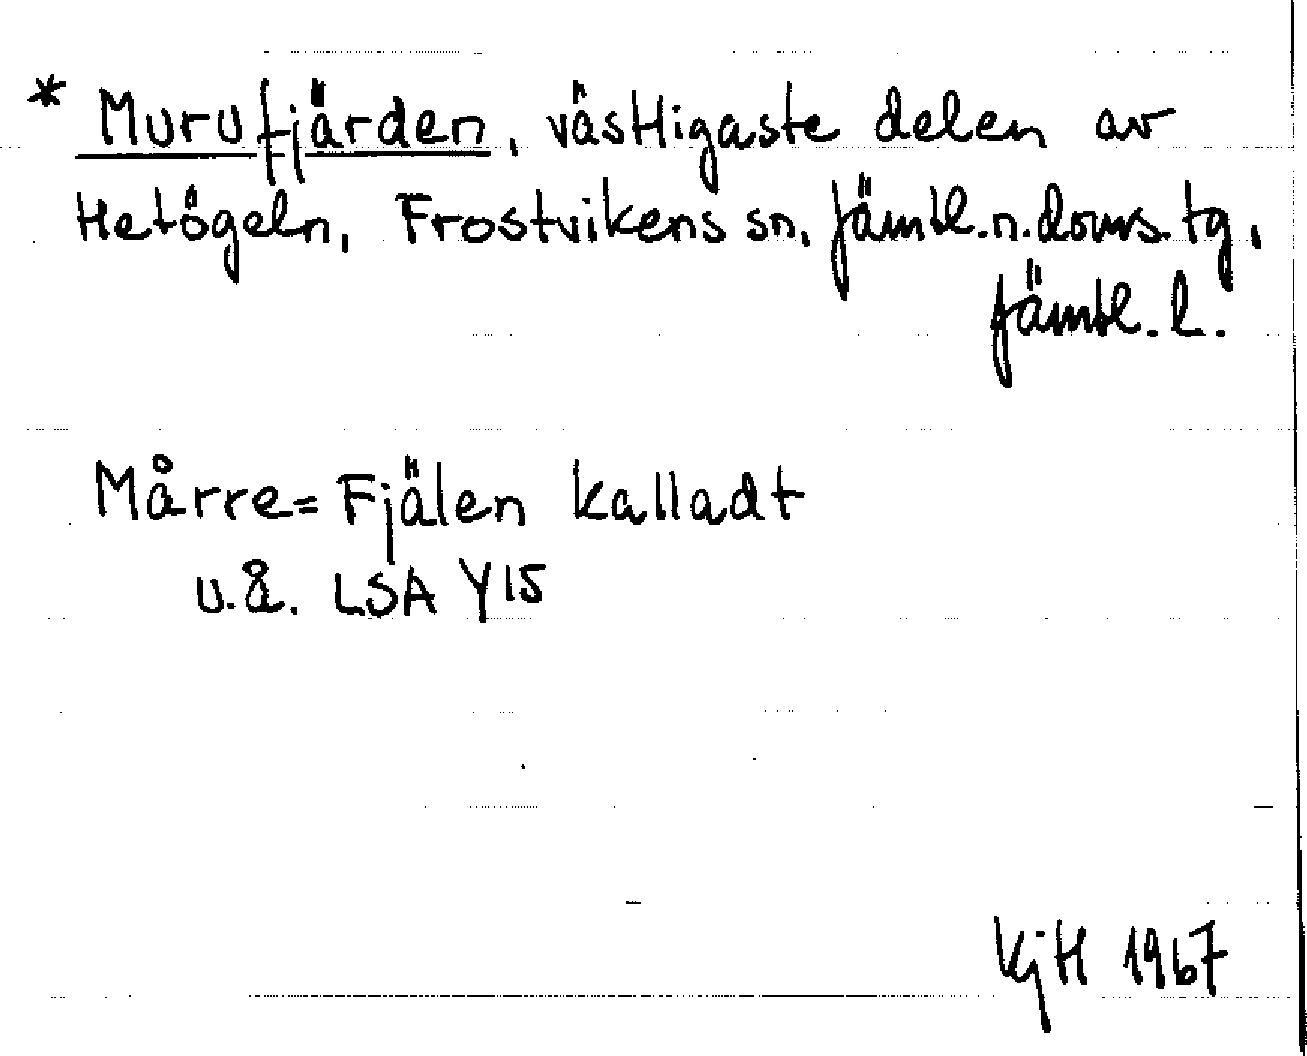 * Murufjärden, västligaste delen av
Hetögeln, Frostvikens sn, Jämtl. n. doms. tg,
Jämtl. l.
Mårre= Fjälen kalladt
u.å. LSA Y15
KjH 1967